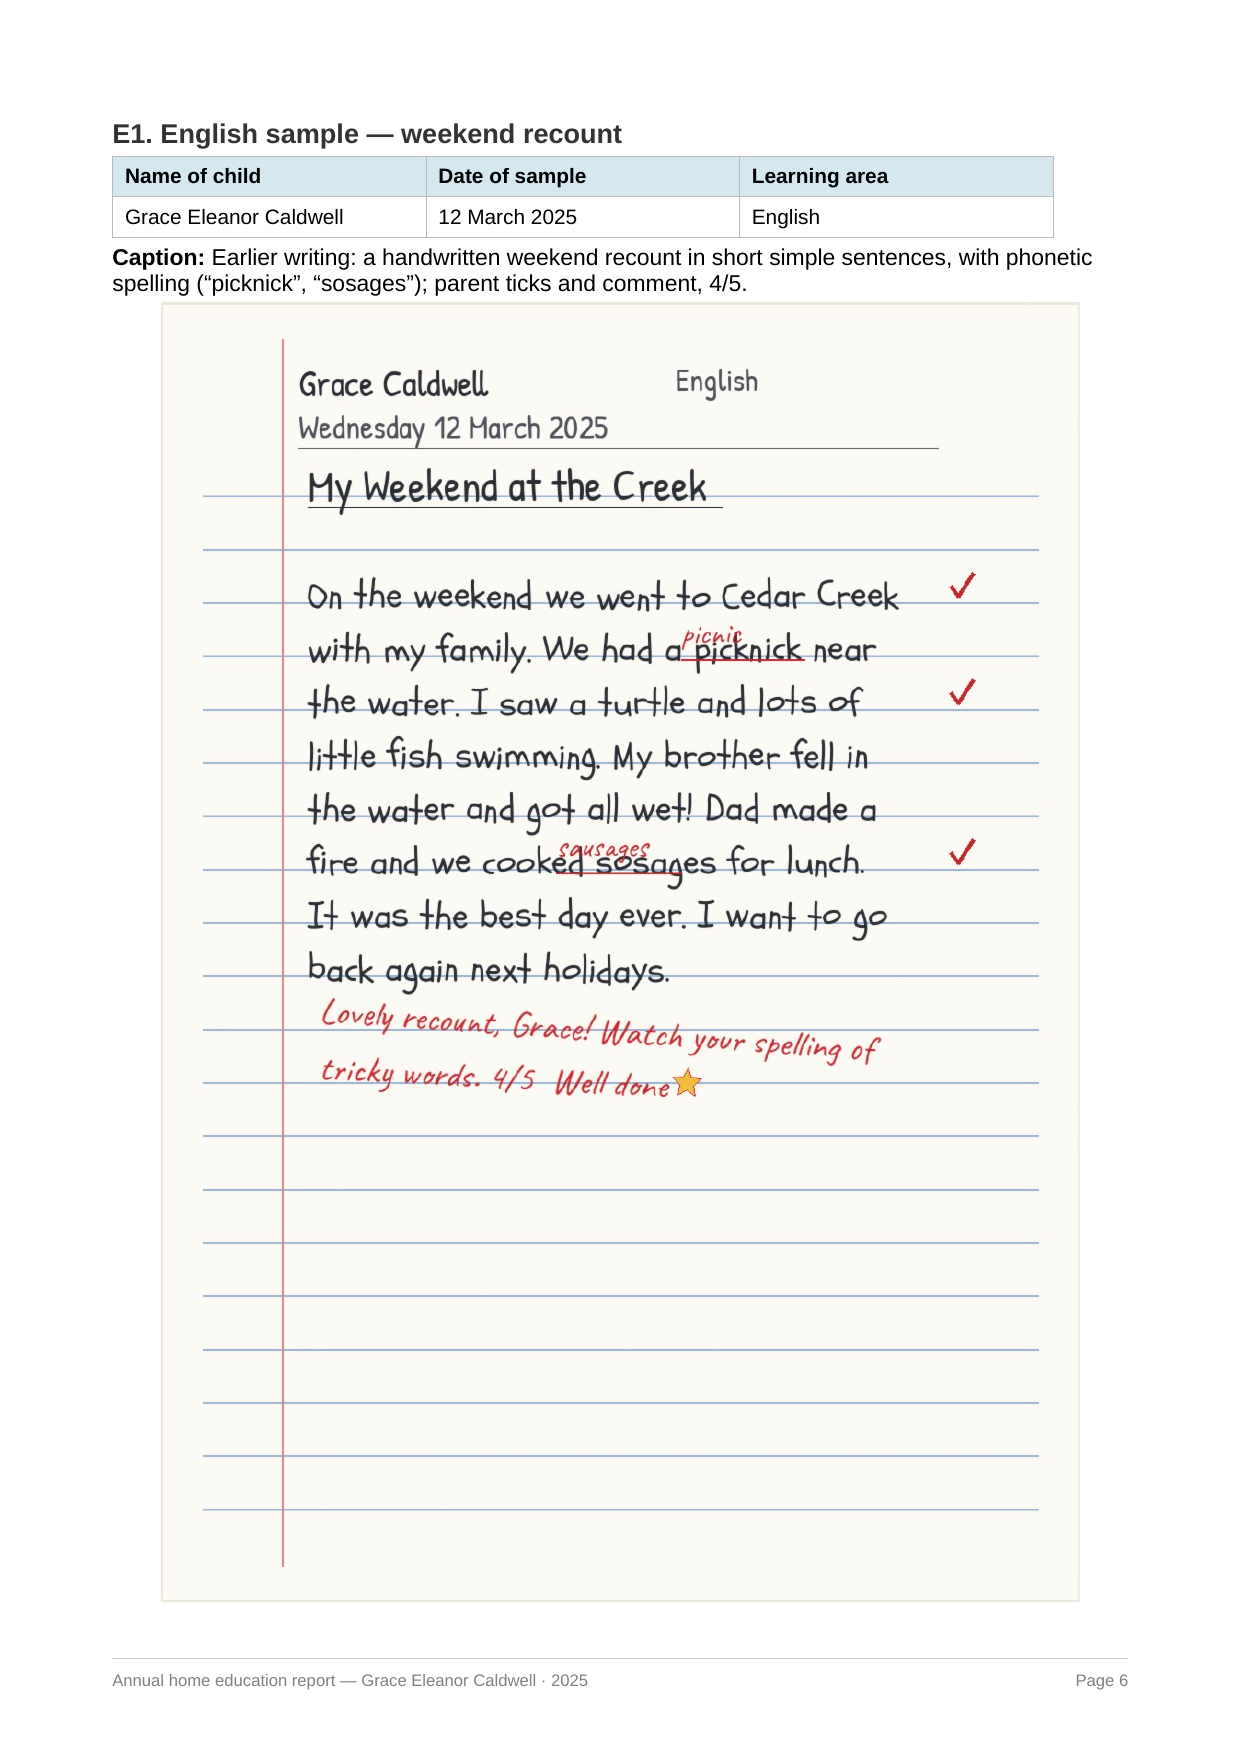 E1. English sample — weekend recount
Name of child Date of sample Learning area
Grace Eleanor Caldwell 12 March 2025 English
Caption: Earlier writing: a handwritten weekend recount in short simple sentences, with phonetic
spelling (“picknick”, “sosages”); parent ticks and comment, 4/5.
Grace Caldwell English
Wednesday 12 March 2025
My Weekend at the Creek
On the weekend we went to Cedar Creek
picnic
with my family. We had a picknick near
the water. I saw a turtle and lots of
little fish swimming. My brother fell in
the water and got all wet! Dad made a
sausages
fire and we cooked sosages for lunch.
It was the best day ever. I want to go
back again next holidays.
Lovely recount, Grace! Watch your spelling of
tricky words. 4/5 Well done
Annual home education report — Grace Eleanor Caldwell · 2025 Page 6